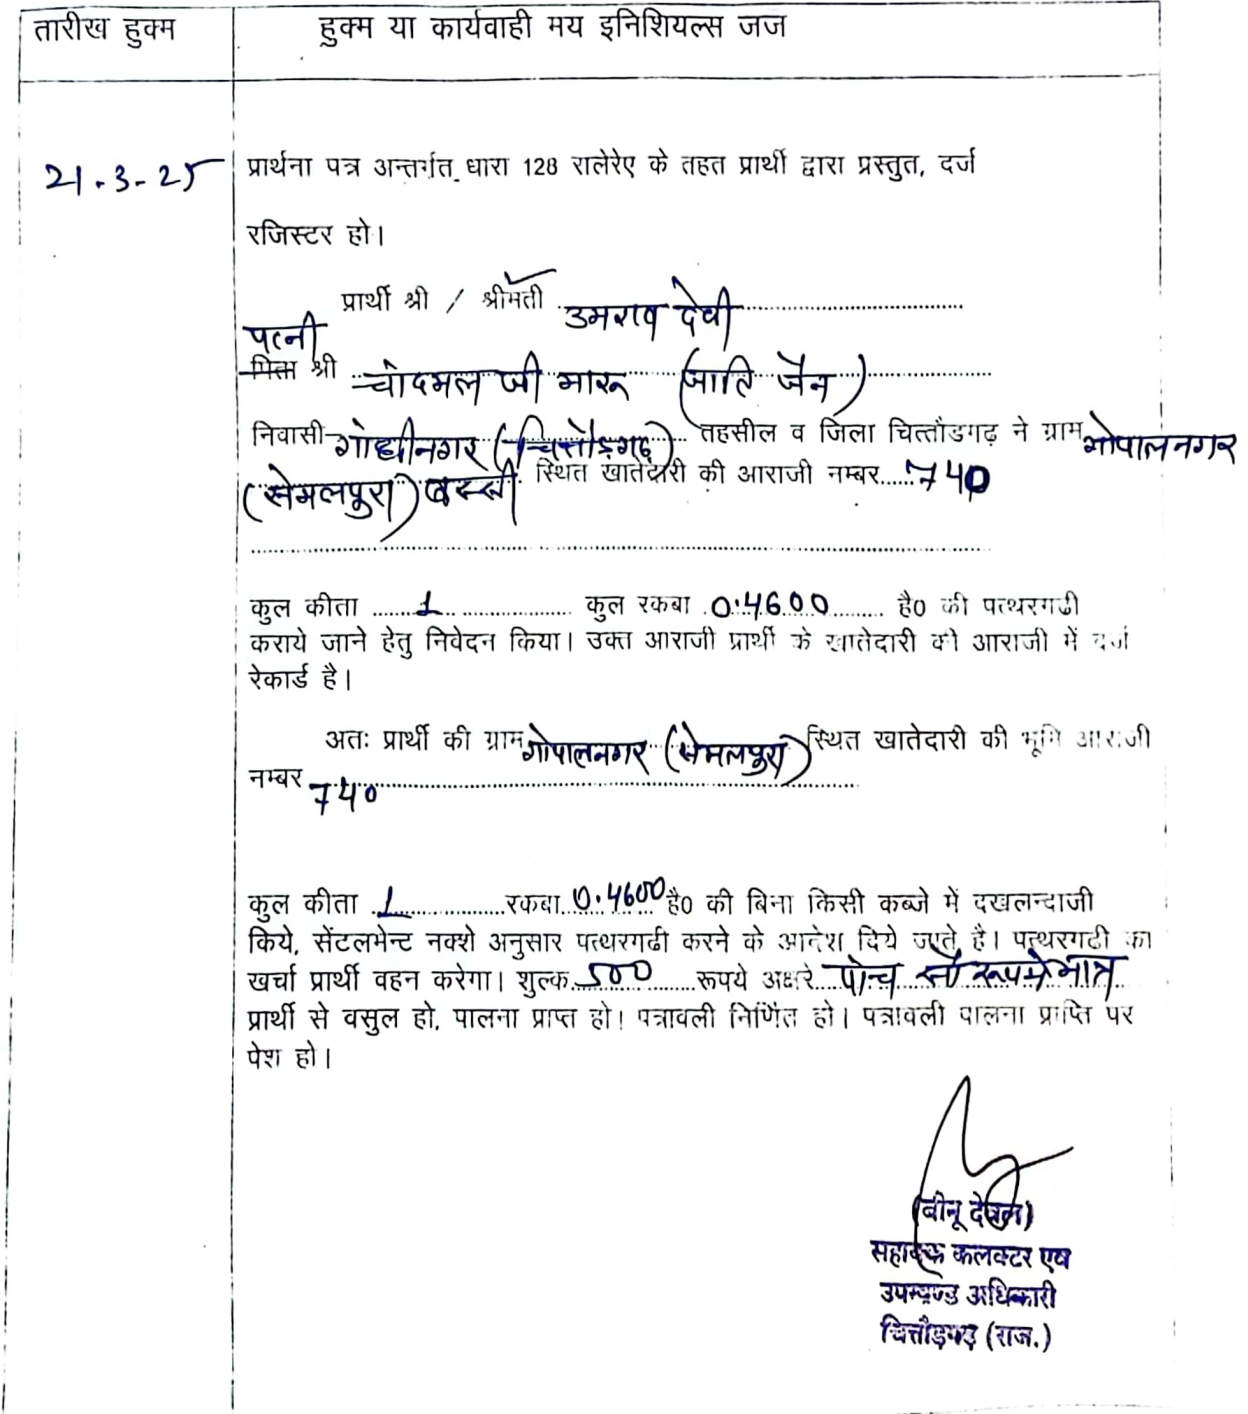 तारीख हुक्म
हुक्म या कार्यवाही मय इनिशियल्स जज
21-3-25
प्रार्थना पत्र अन्तर्गत धारा 128 रालेरेए के तहत प्रार्थी द्वारा प्रस्तुत, दर्ज
रजिस्टर हो।
प्रार्थी श्री / श्रीमती उमराव देवी
पत्नी
पिता श्री चांदमल जी मारू (जाति जैन)
निवासी गांधीनगर (चित्तौड़गढ़) तहसील व जिला चित्तौडगढ़ ने ग्राम गोपालनगर
(सेमलपुरा) बस्सी स्थित खातेदारी की आराजी नम्बर......740
कुल कीता ........1.................... कुल रकबा .0.4600......... है0 की पत्थरगढी
कराये जाने हेतु निवेदन किया। उक्त आराजी प्रार्थी के खातेदारी की आराजी में दर्ज
रेकार्ड है।
अतः प्रार्थी की ग्राम गोपालनगर (सेमलपुरा) स्थित खातेदारी की भूमि आराजी
नम्बर 740
कुल कीता 1................रकबा 0.4600 है0 की बिना किसी कब्जे में दखलन्दाजी
किये, सेंटलमेन्ट नक्शे अनुसार पत्थरगढी करने के आदेश दिये जाते है। पत्थरगढी का
खर्चा प्रार्थी वहन करेगा। शुल्क 500 रूपये अक्षरे पांच सौ रूपये मात्र
प्रार्थी से वसुल हो, पालना प्राप्त हो। पत्रावली निर्णित हो। पत्रावली पालना प्राप्ति पर
पेश हो।
(बीनू देवल)
सहायक कलक्टर एवं
उपखण्ड अधिकारी
चित्तौड़गढ़ (राज.)